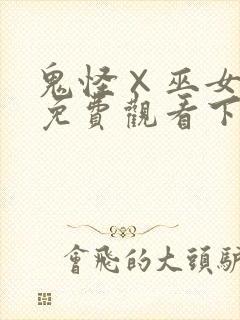 鬼怪×巫女
免費觀看下
會飛的大頭驢